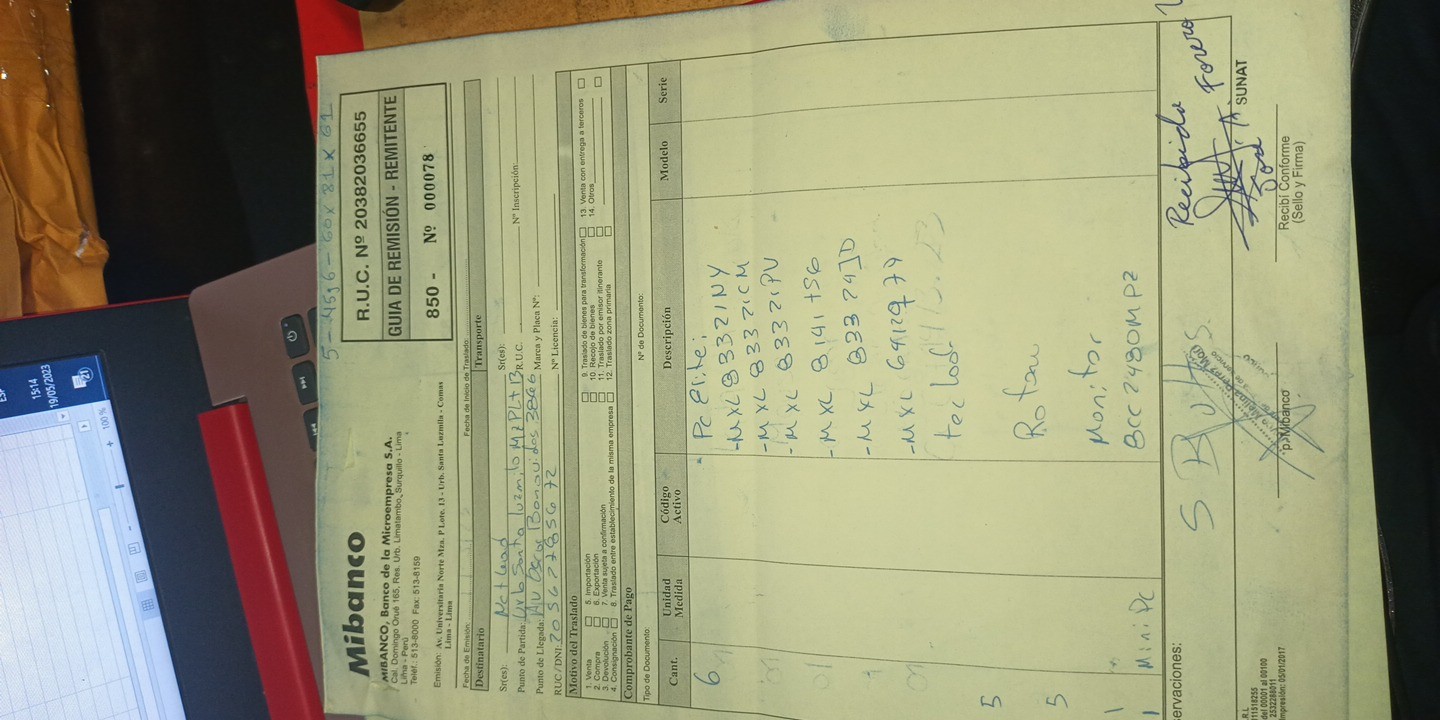 5-4596-60x81x61
Mibanco
MIBANCO, Banco de la Microempresa S.A.
Cal. Domingo Orué 165, Res. Urb. Limatambo, Surquillo - Lima
Lima - Perú
Telef.: 513-8000 Fax: 513-8159
Emisión: Av. Universitaria Norte Mza. P Lote. 13 - Urb. Santa Luzmila - Comas
Lima - Lima
R.U.C. Nº 20382036655
GUIA DE REMISIÓN - REMITENTE
850 - Nº 000078
Fecha de Emisión:
Fecha de Inicio de Traslado:
Destinatario
Transporte
Sr(es):
Sr(es):
Punto de Partida: Urb Santa Luzmila Mz P Lt 13
R.U.C.
Nº Inscripción:
Punto de Llegada: Av Oscar Benavides 3866
Marca y Placa Nº:
RUC/DNI: 20562785672
Nº Licencia:
Motivo del Traslado
1. Venta
2. Compra
3. Devolución
4. Consignación
5. Importación
6. Exportación
7. Venta sujeta a confirmación
8. Traslado entre establecimiento de la misma empresa
9. Traslado de bienes para transformación
10. Recojo de bienes
11. Traslado por emisor itinerante
12. Traslado zona primaria
13. Venta con entrega a terceros
14. Otros
Comprobante de Pago
Tipo de Documento:
Nº de Documento:
Cant. Unidad Medida Código Activo Descripción Modelo Serie
6 Pc Elite:
-MXL83321NY
-MXL83321CM
-MXL83321PV
-MXL8141TS6
-MXL83324JD
-MXL6412977
5
5
1 Monitor
1 Mini Pc
servaciones:
Recibido
Forero
p. Mibanco
Recibí Conforme
(Sello y Firma)
SUNAT
del 00001 al 00100
Impresión: 05/01/2017
100 %
15:14
19/05/2023
21